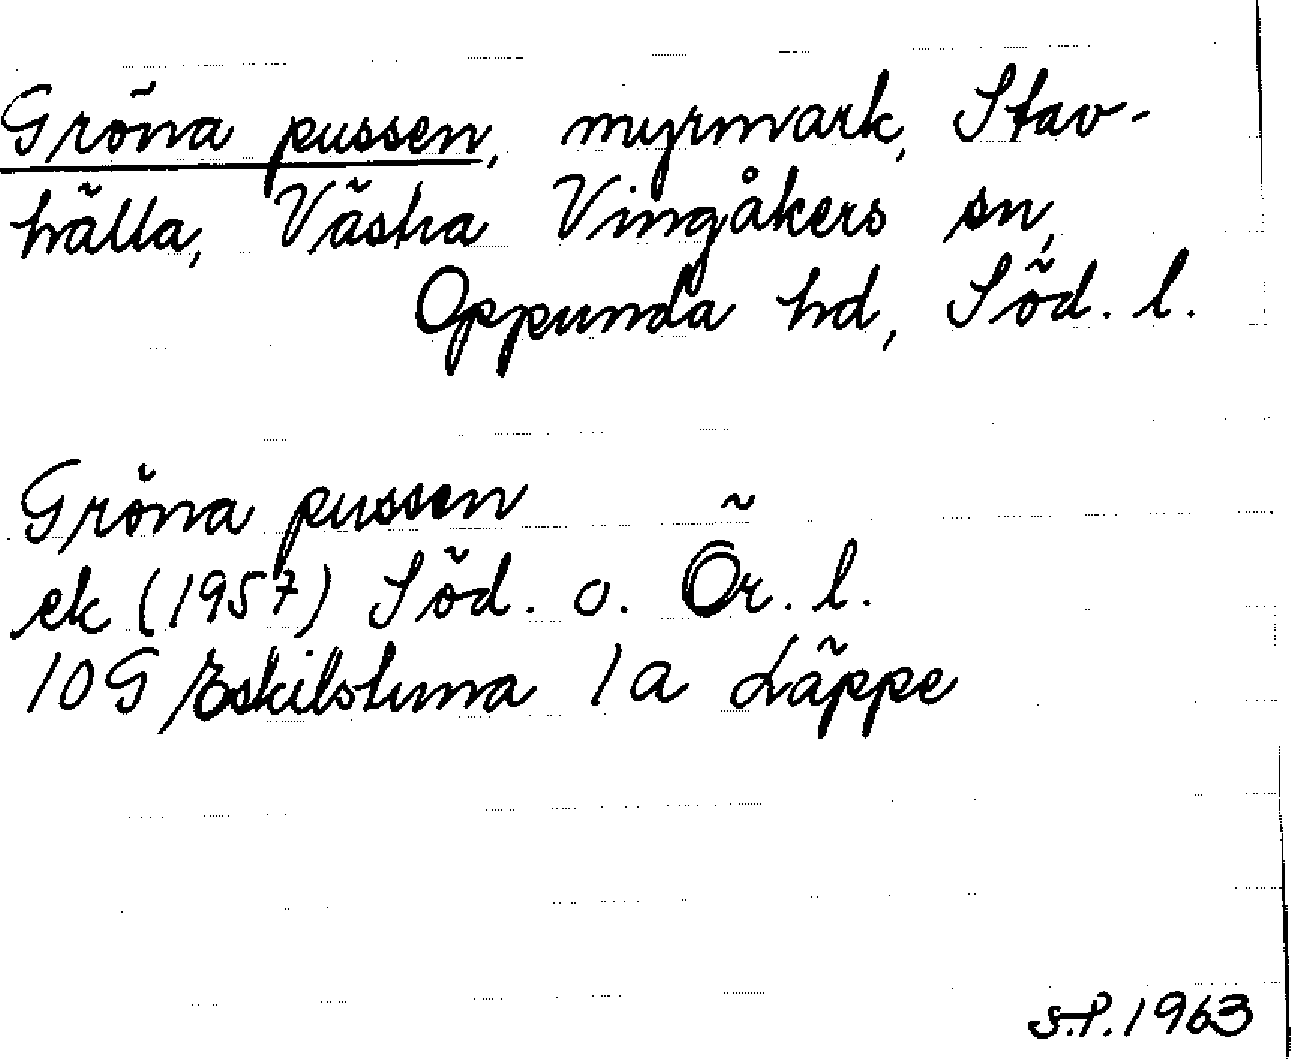 Gröna pussen, myrmark, Stav-
hälla, Västra Vingåkers sn,
Oppunda hd, Söd. l.
Gröna pussen
ek (1957) Söd. o. Ör. l.
10G Eskilstuna 1a Läppe
S.P. 1963